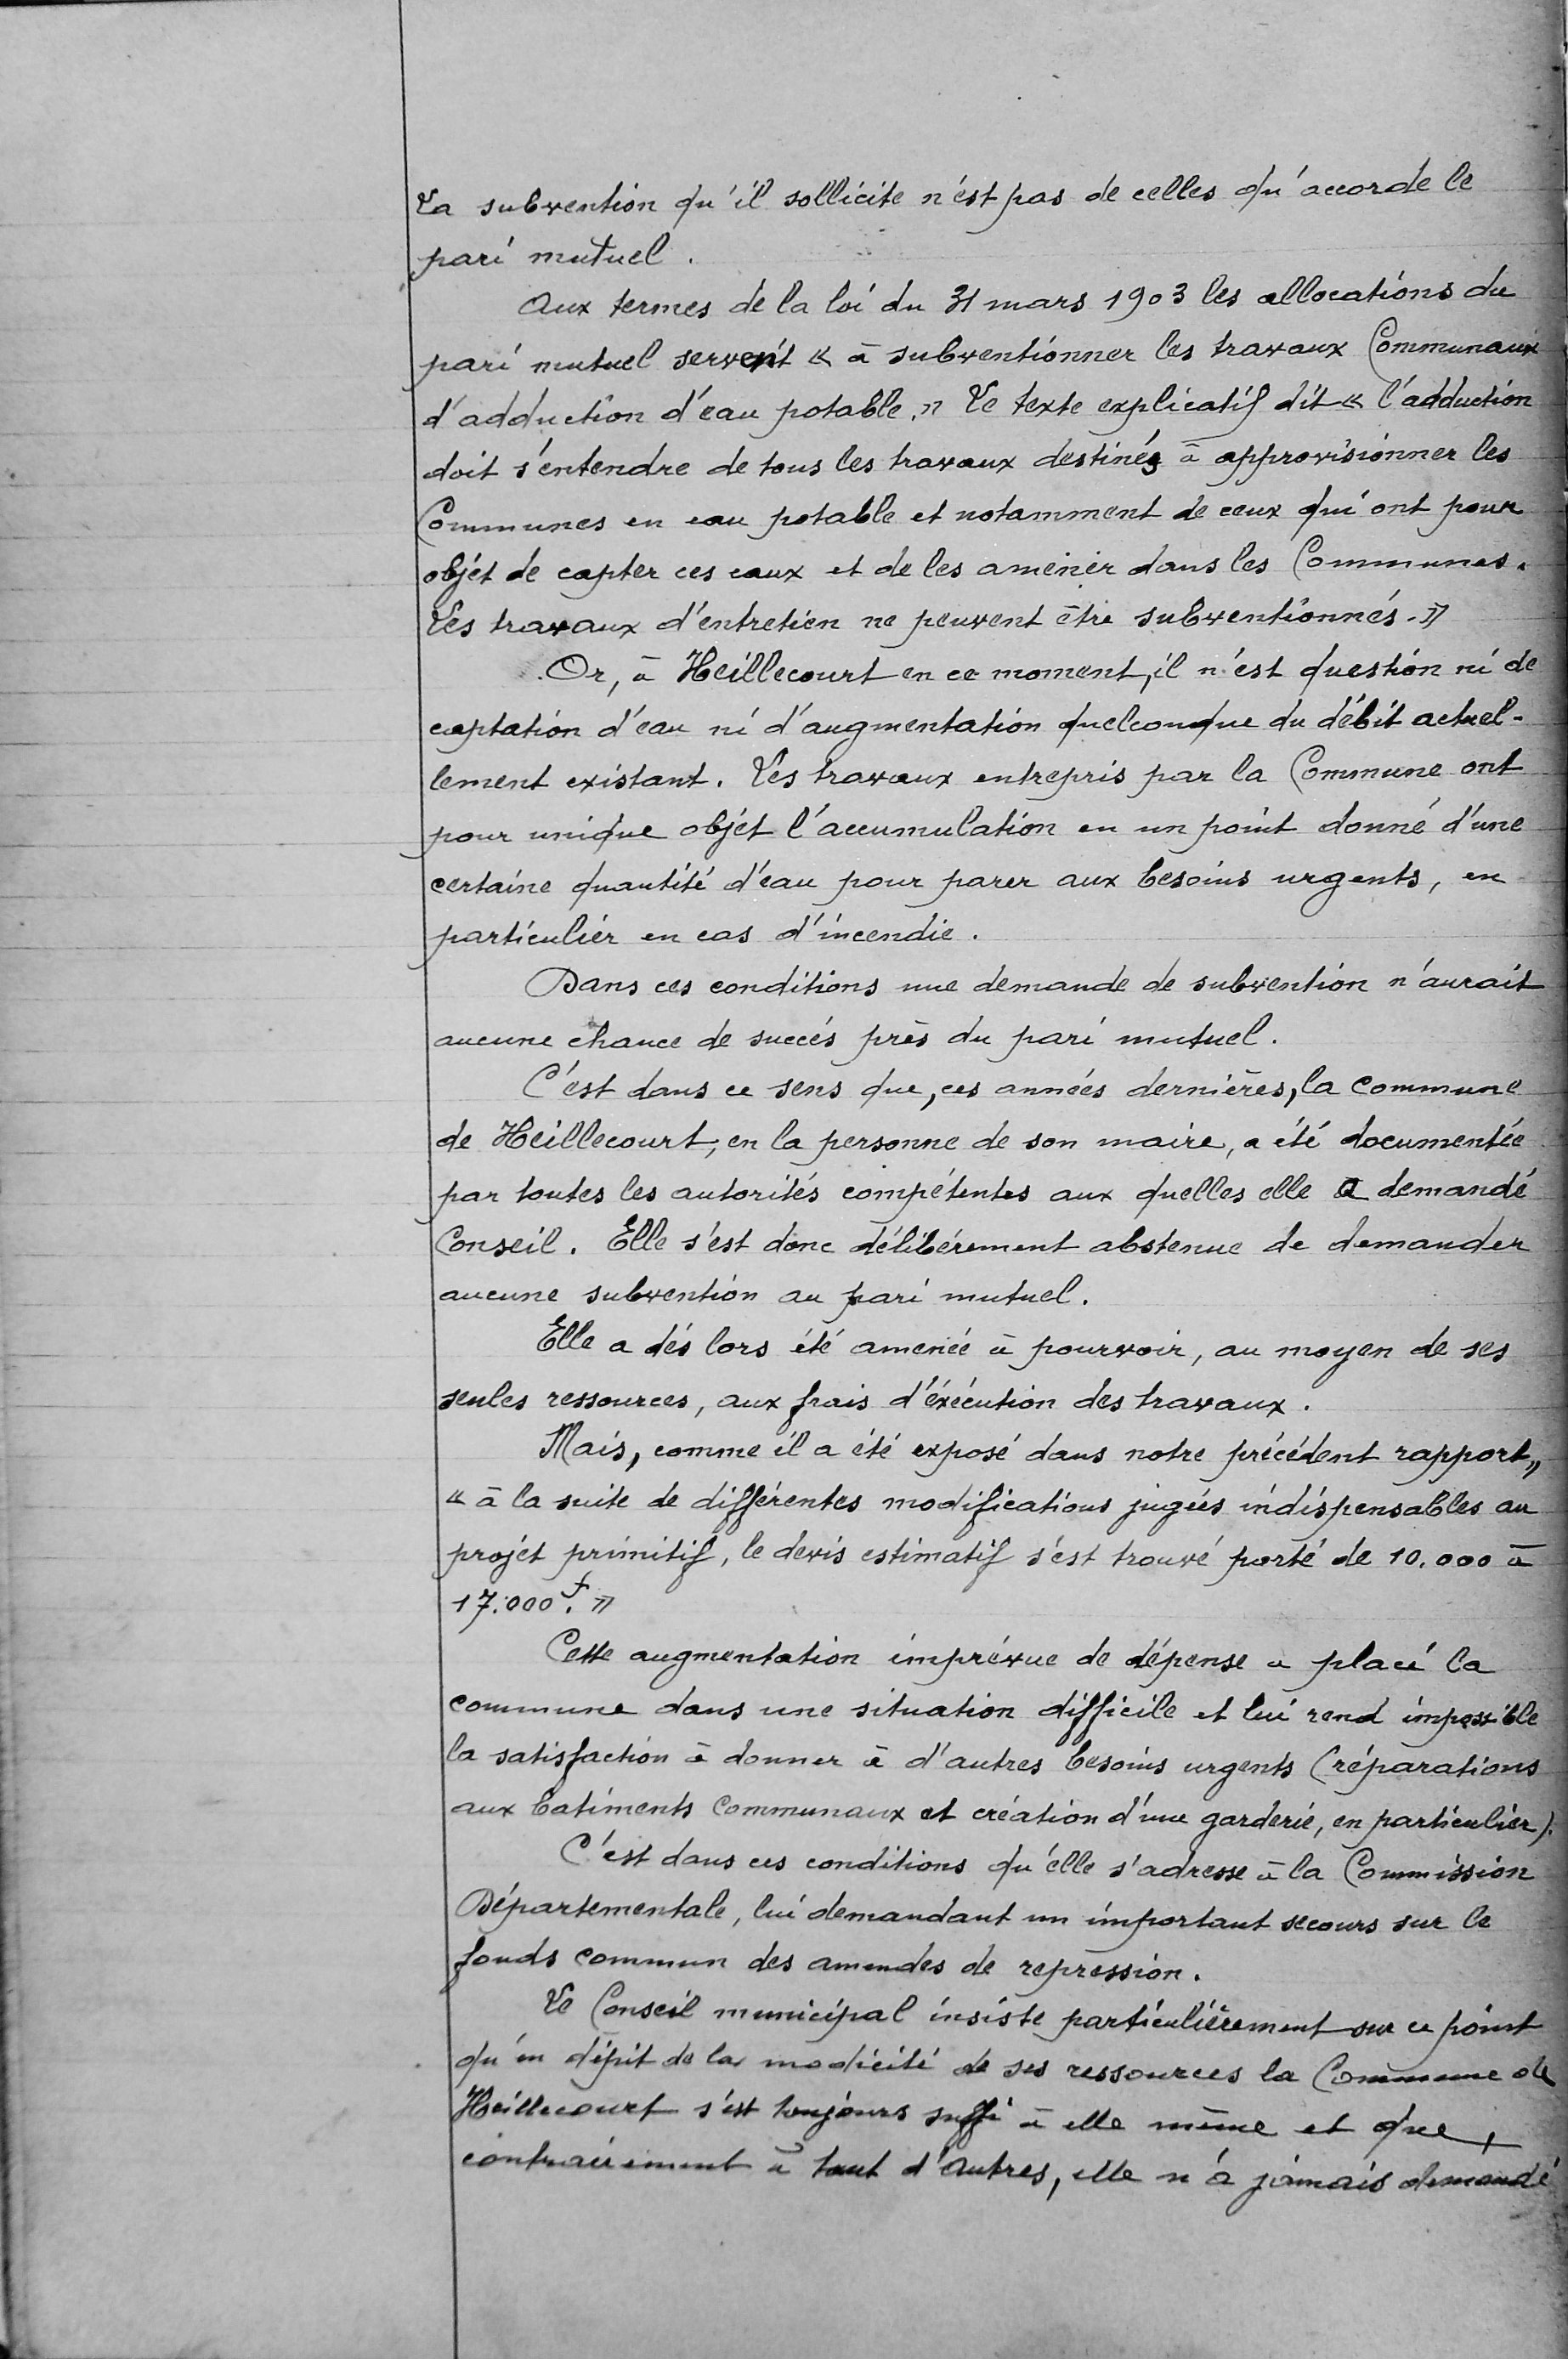 La subvention qu'il sollicite n'est pas de celles qu'accorde le
pari mutuel.
Aux termes de la loi du 31 mars 1903 les allocations du
pari mutuel servent « à subventionner les travaux Communaux
d'adduction d'eau potable. » Le texte explicatif dit « l'adduction
doit s'entendre de tous les travaux destinés à approvisionner les
Communes en eau potable et notamment de ceux qui ont pour
objet de capter ces eaux et de les amener dans les Communes.
Les travaux d'entretien ne peuvent être subventionnés. »
Or, à Heillecourt en ce moment, il n'est question ni de
captation d'eau ni d'augmentation quelconque du débit actuel-
lement existant. Les travaux entrepris par la Commune ont
pour unique objet l'accumulation en un point donné d'une
certaine quantité d'eau pour parer aux besoins urgents, en
particulier en cas d'incendie.
Dans ces conditions une demande de subvention n'aurait
aucune chance de succés près du pari mutuel.
C'est dans ce sens que, ces années dernières, la commune
de Heillecourt, en la personne de son maire, a été documentée
par toutes les autorités compétentes aux quelles elle a demandé
Conseil. Elle s'est donc délibérement abstenue de demander
aucune subvention au pari mutuel.
Elle a dés lors été amenée à pourvoir, au moyen de ses
seules ressources, aux frais d'éxécution des travaux.
Mais, comme il a été exposé dans notre précédent rapport,,
« à la suite de différentes modifications jugées indispensables au
projet primitif, le devis estimatif s'est trouvé porté de 10.000 à
17.000 f. »
Cette augmentation imprévue de dépense a placé la
commune dans une situation difficile et lui rend impossible
la satisfaction à donner à d'autres besoins urgents (réparations
aux batiments Communaux et création d'une garderie, en particulier).
C'est dans ces conditions qu'elle s'adresse à la Commission
Départementale, lui demandant un important secours sur le
fonds commun des amendes de repression.
Le Conseil municipal insiste particulièrement sur ce point
qu'en dépit de la modicité de ses ressources la Commune de
Heillecourt s'est toujours suffi à elle même et que,
contrairement à tant d'autres, elle n'a jamais demandé